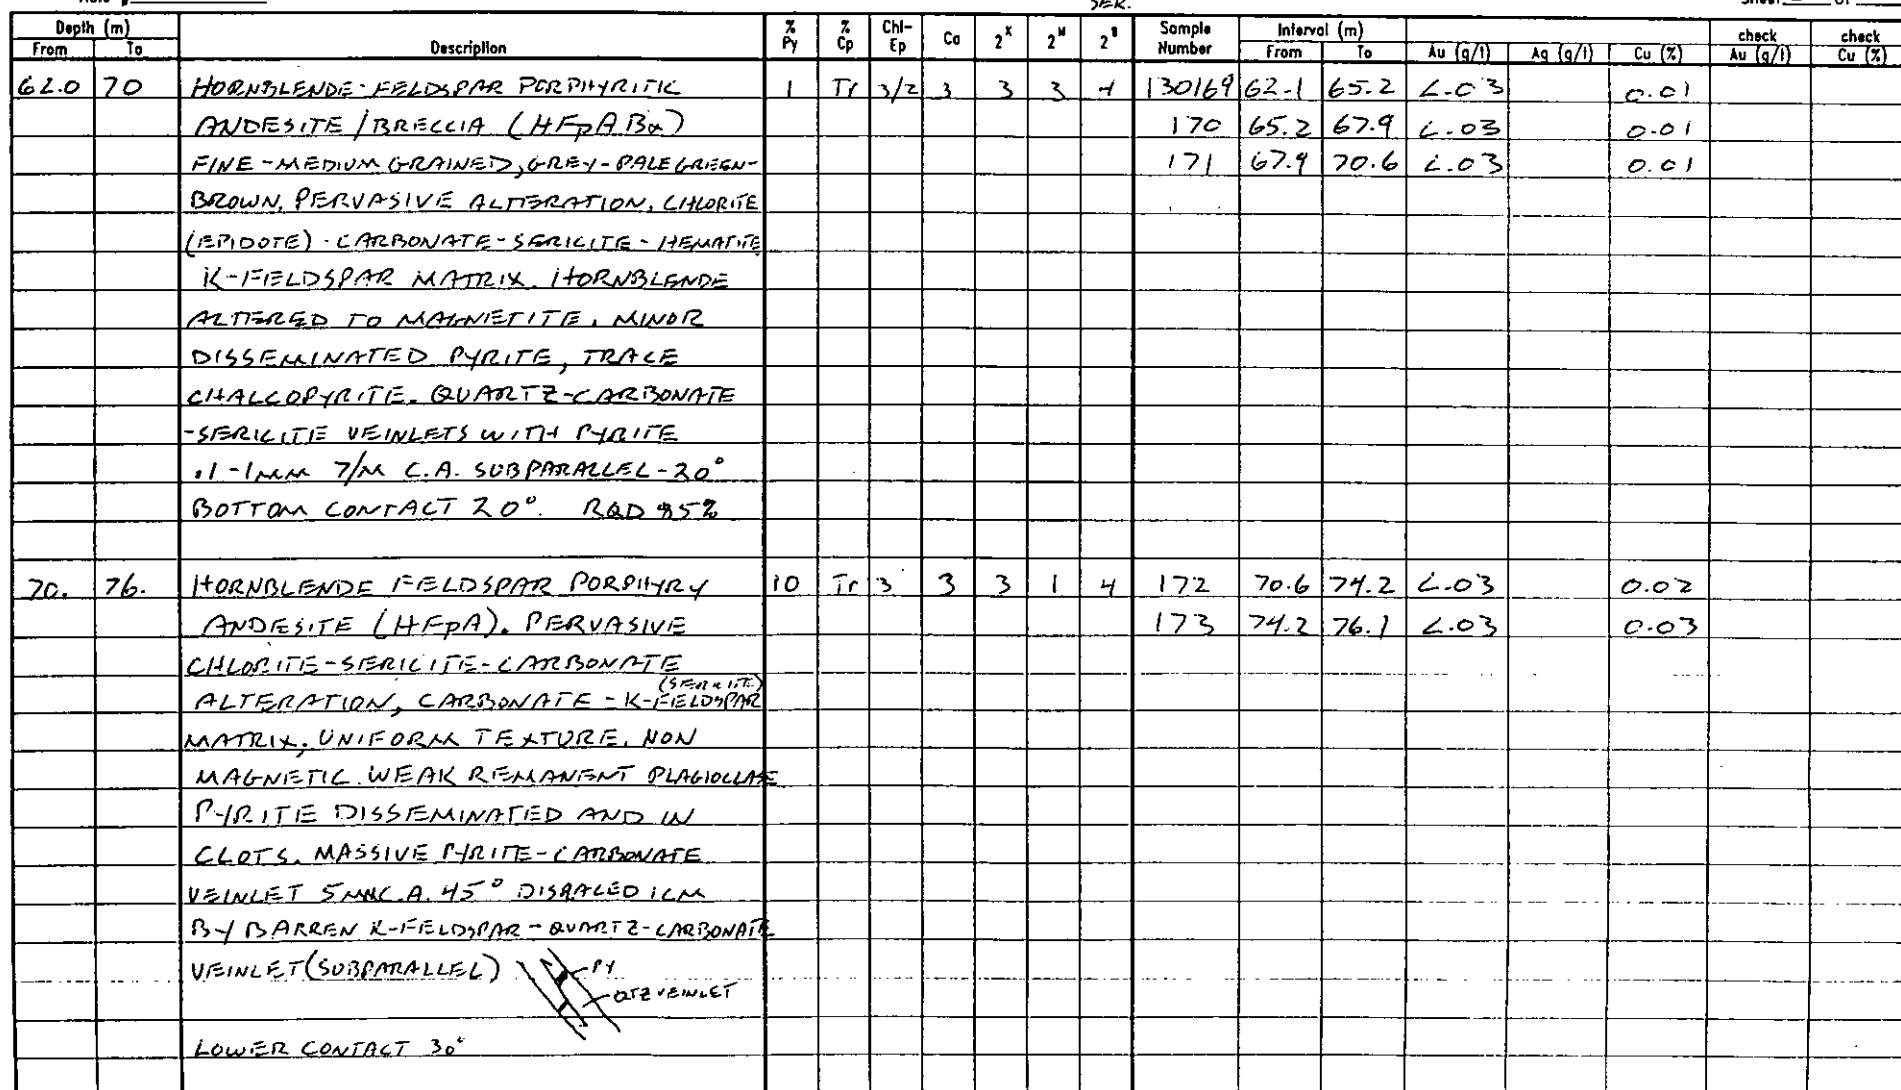 SER.
Depth (m) Description % Py % Cp Chl-Ep Ca 2^X 2^M Sample Number Interval (m) Au (g/t) Ag (g/t) Cu (%) check Au (g/t) check Cu (%)
From To From To
62.0 70 HORNBLENDE-FELDSPAR PORPHYRITIC 1 Tr 3/2 3 3 3 130169 62.1 65.2 <.03 0.01
ANDESITE/BRECCIA (HFpABx) 170 65.2 67.9 <.03 0.01
FINE-MEDIUM GRAINED, GREY-PALE GREEN- 171 67.9 70.6 <.03 0.01
BROWN, PERVASIVE ALTERATION, CHLORITE
(EPIDOTE)-CARBONATE-SERICITE-HEMATITE
K-FELDSPAR MATRIX. HORNBLENDE
ALTERED TO MAGNETITE. MINOR
DISSEMINATED PYRITE, TRACE
CHALCOPYRITE. QUARTZ-CARBONATE
-SERICITE VEINLETS WITH PYRITE
.1-1MM 7/M C.A. SUBPARALLEL-20°
BOTTOM CONTACT 20°. RQD
70. 76. HORNBLENDE FELDSPAR PORPHYRY 10 Tr 3 3 3 1 4 172 70.6 74.2 <.03 0.02
ANDESITE (HFpA). PERVASIVE 173 74.2 76.1 <.03 0.03
CHLORITE-SERICITE-CARBONATE
(SERICITE)
ALTERATION, CARBONATE-K-FELDSPAR
MATRIX, UNIFORM TEXTURE. NON
MAGNETIC. WEAK REMANENT PLAGIOCLASE
PYRITE DISSEMINATED AND IN
CLOTS. MASSIVE PYRITE-CARBONATE
VEINLET 5MM C.A. 45° DISPLACED 1CM
BY BARREN K-FELDSPAR-QUARTZ-CARBONATE
VEINLET (SUBPARALLEL) PY
QTZ VEINLET
LOWER CONTACT 30°